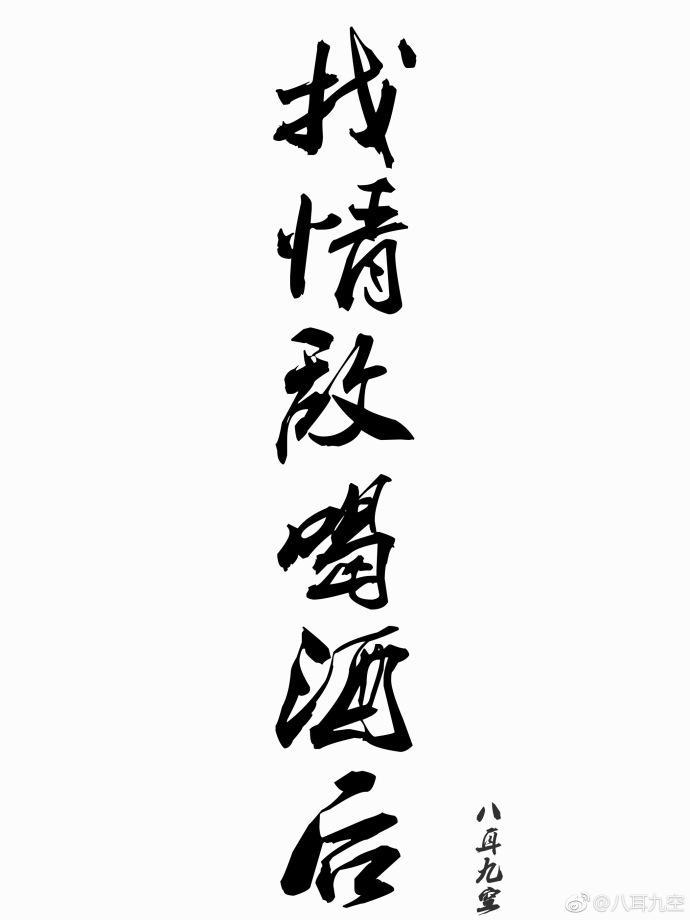 找情敌喝酒后
八耳九空
@八耳九空